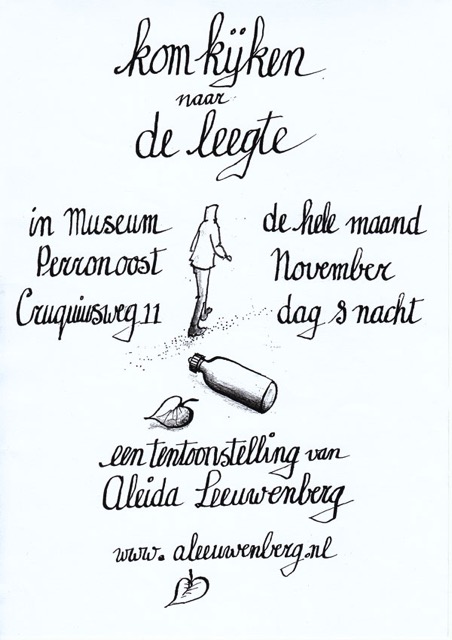 kom kijken
naar
de leegte
in Museum
Perronoost
Cruquiusweg 11
de hele maand
November
dag & nacht
een tentoonstelling van
Aleida Leeuwenberg
www.aleeuwenberg.nl